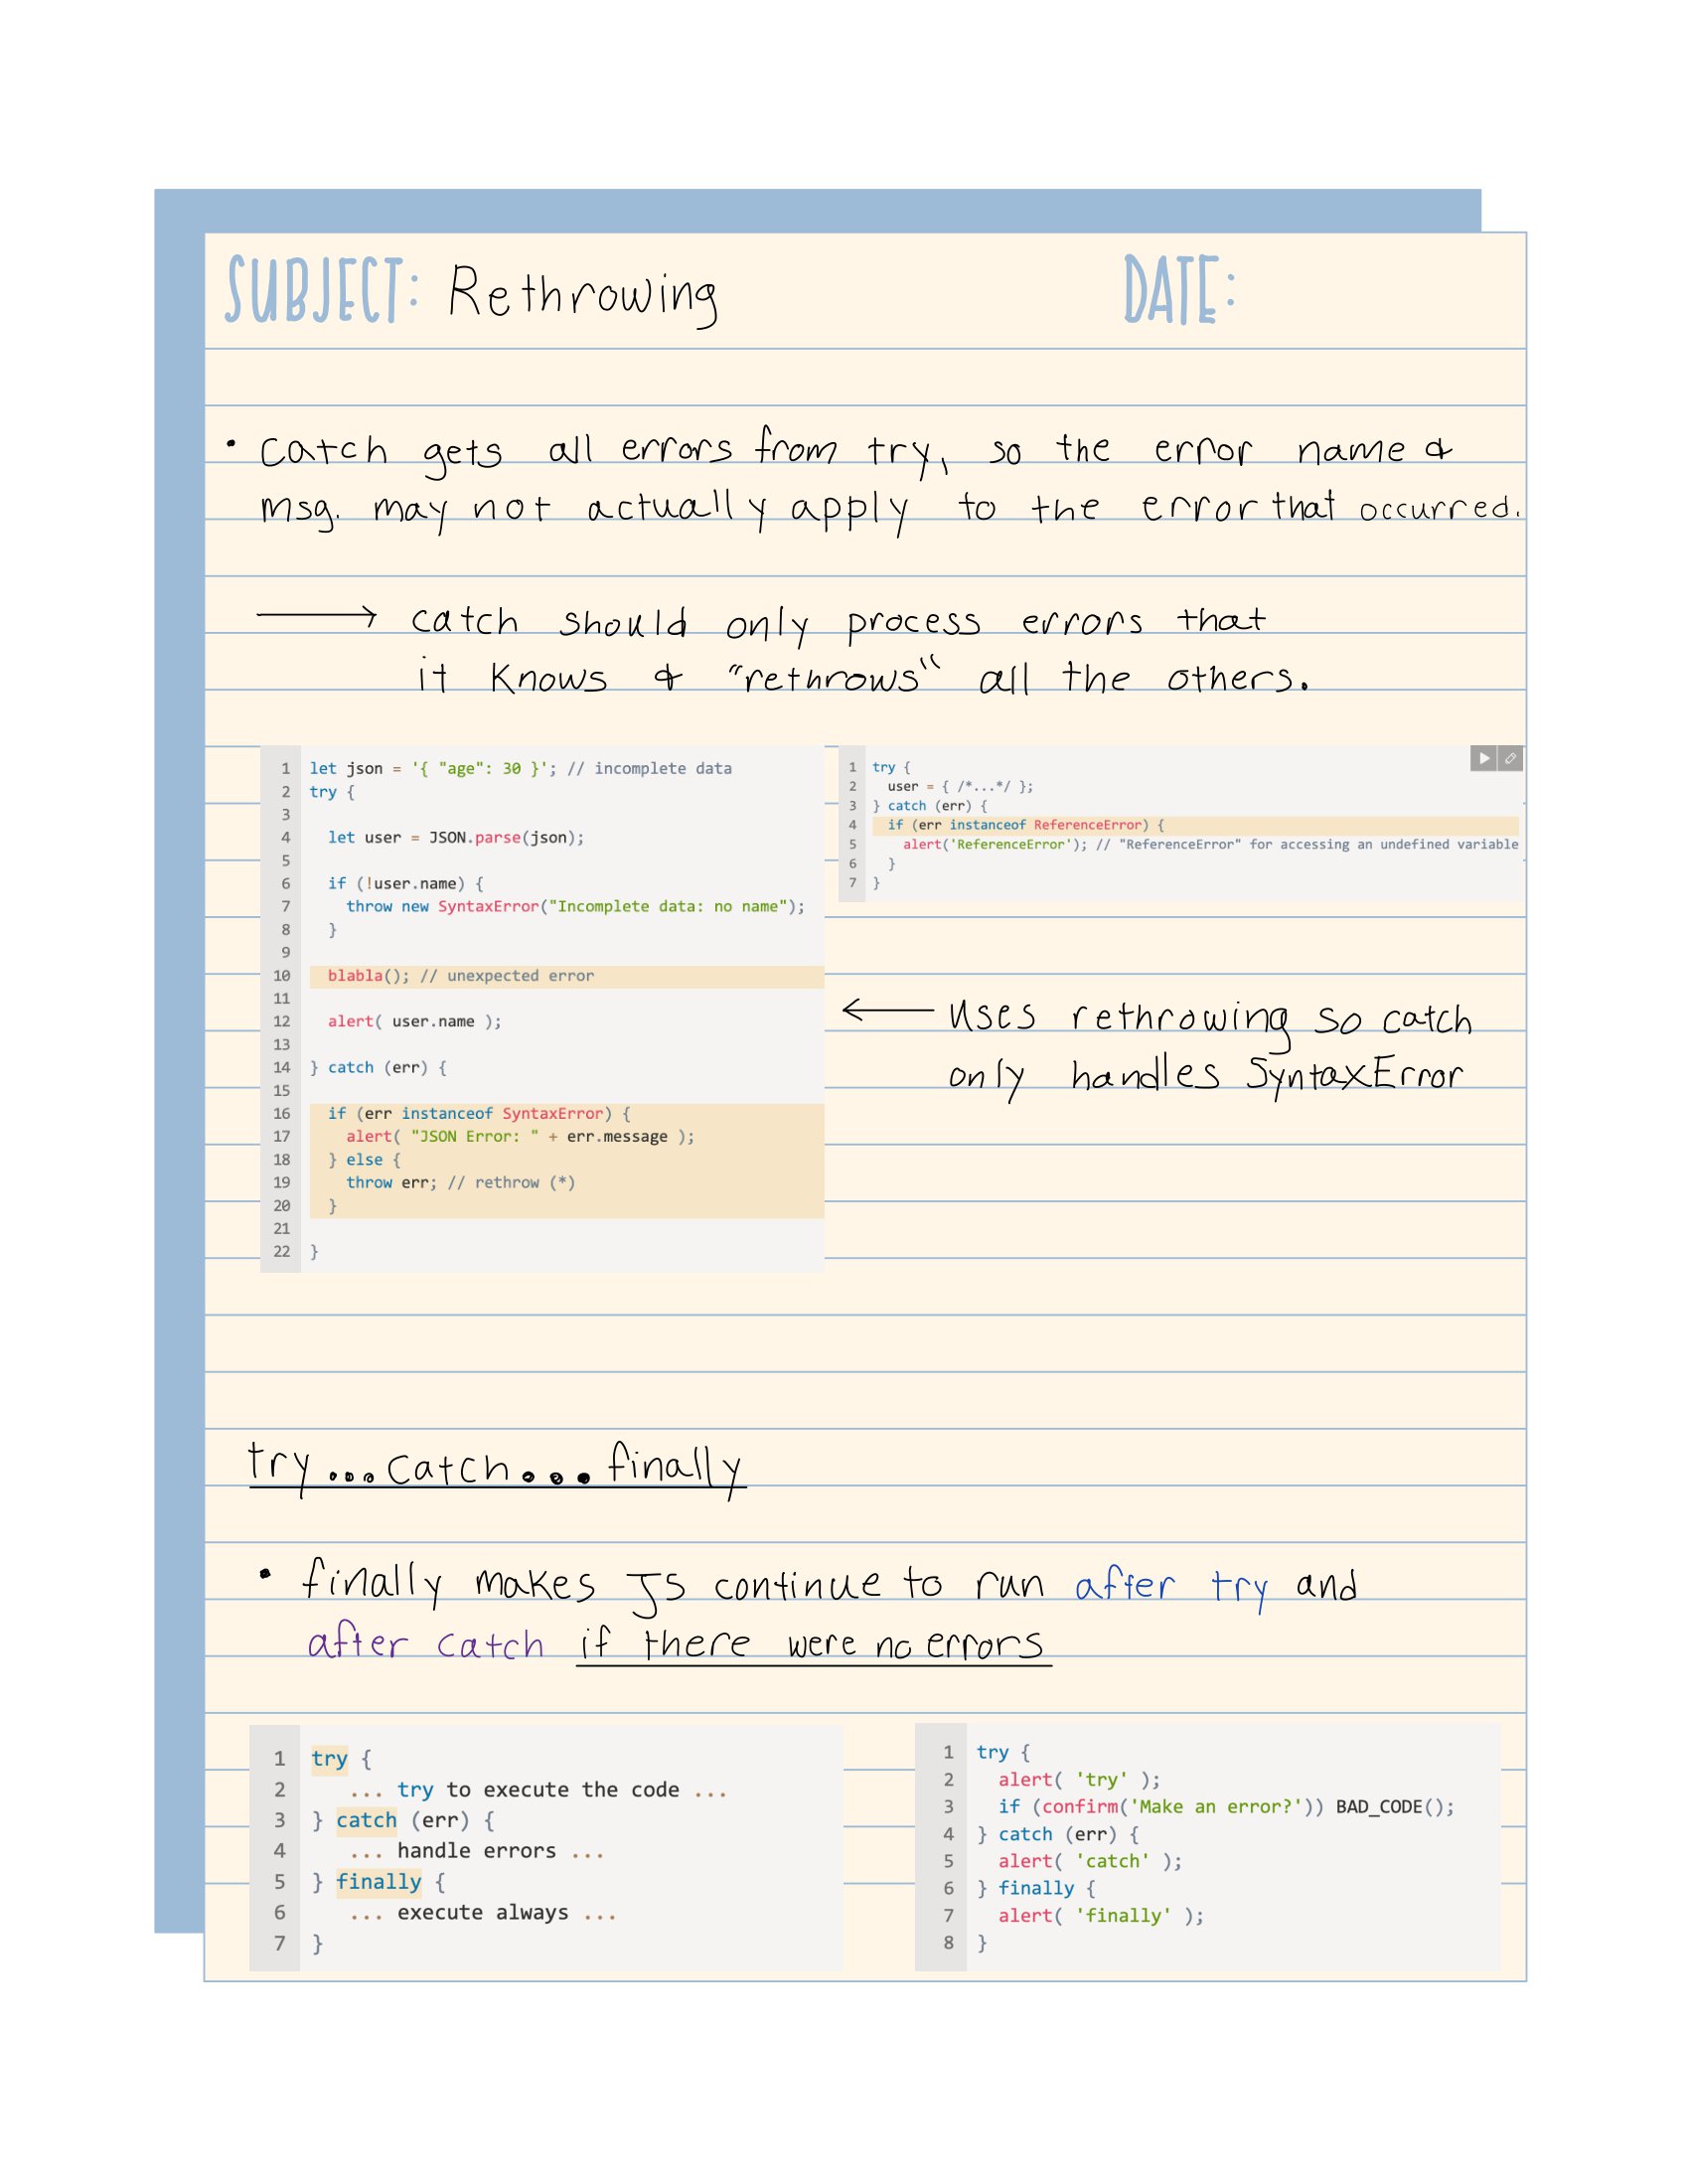 SUBJECT: Rethrowing
DATE:
• Catch gets all errors from try, so the error name &
msg. may not actually apply to the error that occurred.
→ catch should only process errors that
it knows & "rethrows" all the others.
1 let json = '{ "age": 30 }'; // incomplete data
2 try {
3
4 let user = JSON.parse(json);
5
6 if (!user.name) {
7 throw new SyntaxError("Incomplete data: no name");
8 }
9
10 blabla(); // unexpected error
11
12 alert( user.name );
13
14 } catch (err) {
15
16 if (err instanceof SyntaxError) {
17 alert( "JSON Error: " + err.message );
18 } else {
19 throw err; // rethrow (*)
20 }
21
22 }
1 try {
2 user = { /*...*/ };
3 } catch (err) {
4 if (err instanceof ReferenceError) {
5 alert('ReferenceError'); // "ReferenceError" for accessing an undefined variable
6 }
7 }
← Uses rethrowing so catch
only handles SyntaxError
try...catch...finally
• finally makes JS continue to run after try and
after catch if there were no errors
1 try {
2 ... try to execute the code ...
3 } catch (err) {
4 ... handle errors ...
5 } finally {
6 ... execute always ...
7 }
1 try {
2 alert( 'try' );
3 if (confirm('Make an error?')) BAD_CODE();
4 } catch (err) {
5 alert( 'catch' );
6 } finally {
7 alert( 'finally' );
8 }